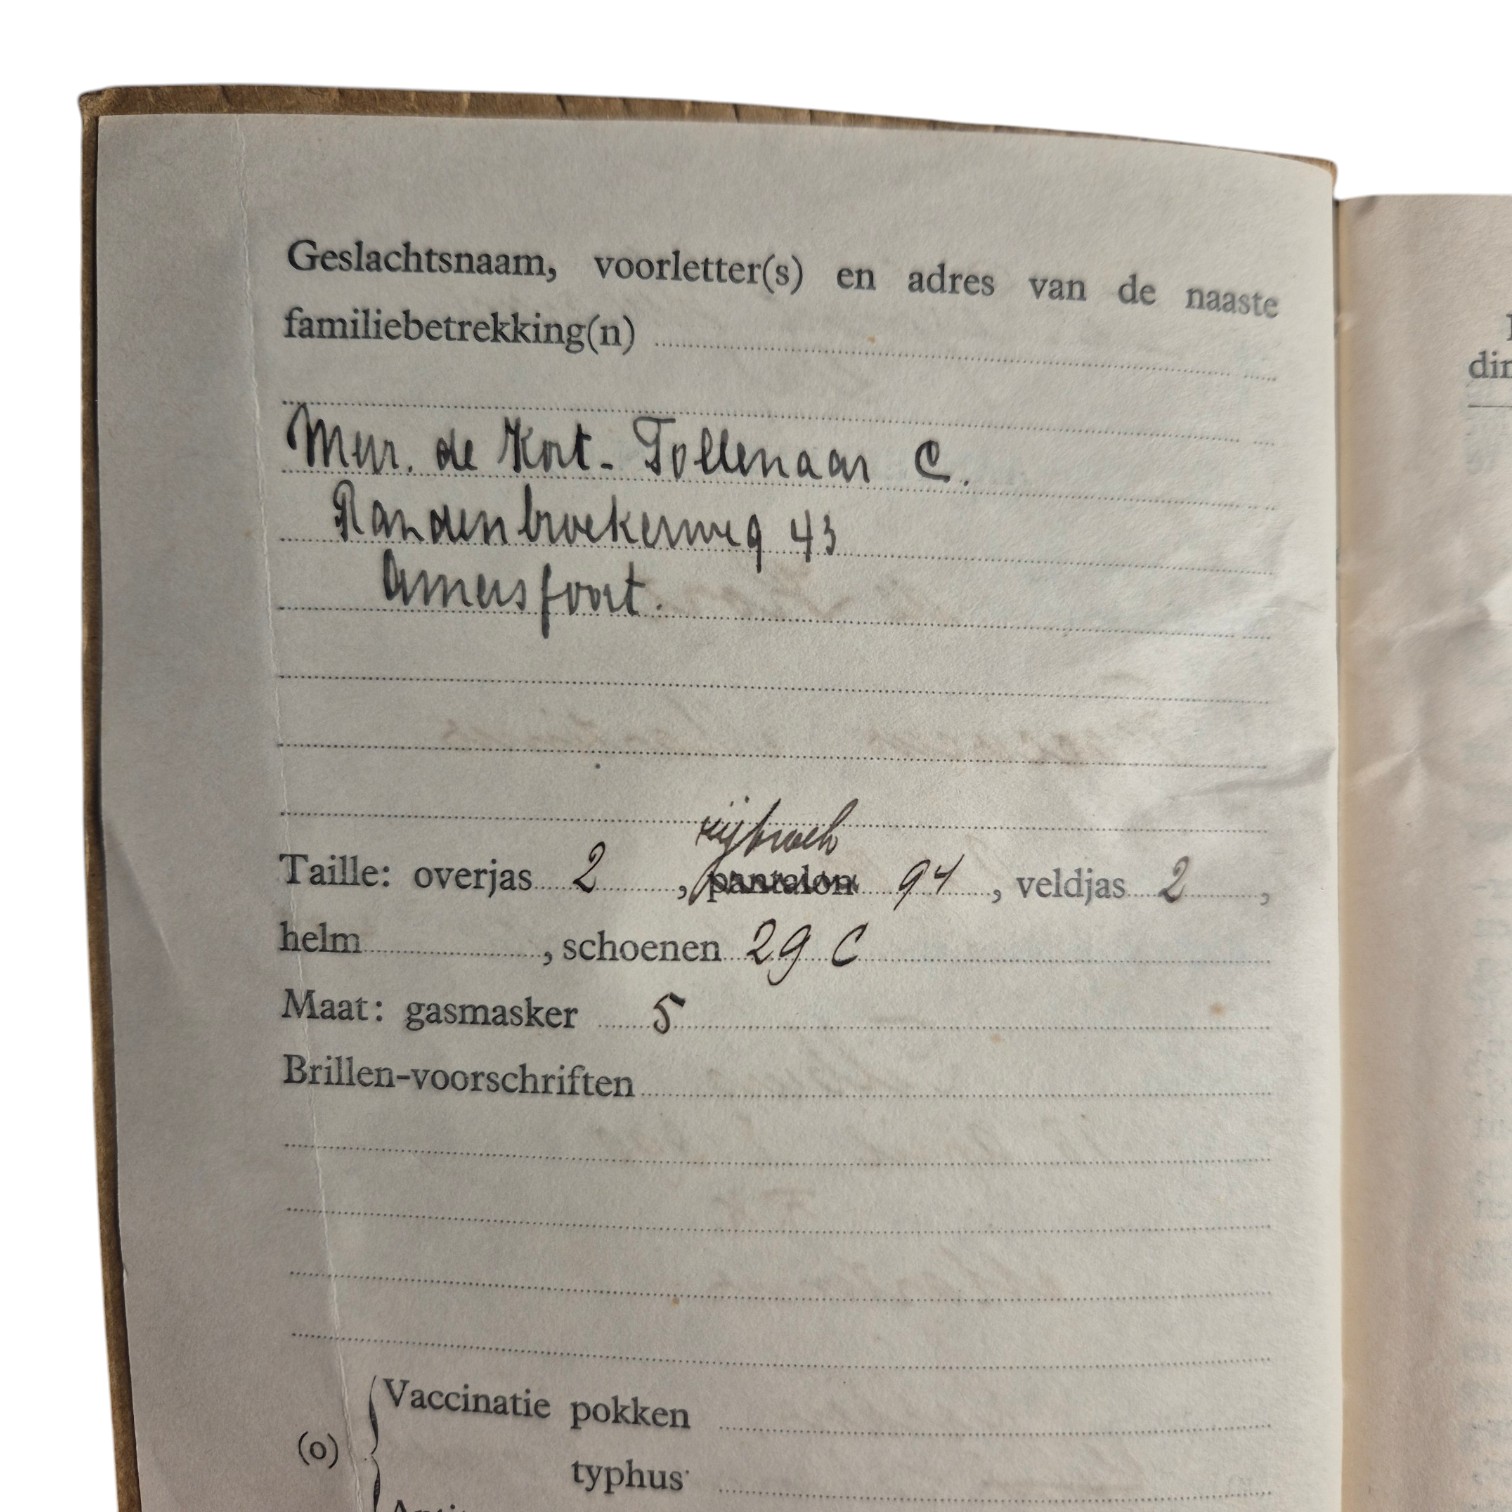 Geslachtsnaam, voorletter(s) en adres van de naaste
familiebetrekking(n)
Mevr. de Kort - Tollenaar C.
Randenbroekerweg 43
Amersfoort.
rijbroek
Taille: overjas 2, pantalon 94, veldjas 2,
helm, schoenen 29 C
Maat: gasmasker 5
Brillen-voorschriften
(o) Vaccinatie pokken
typhus